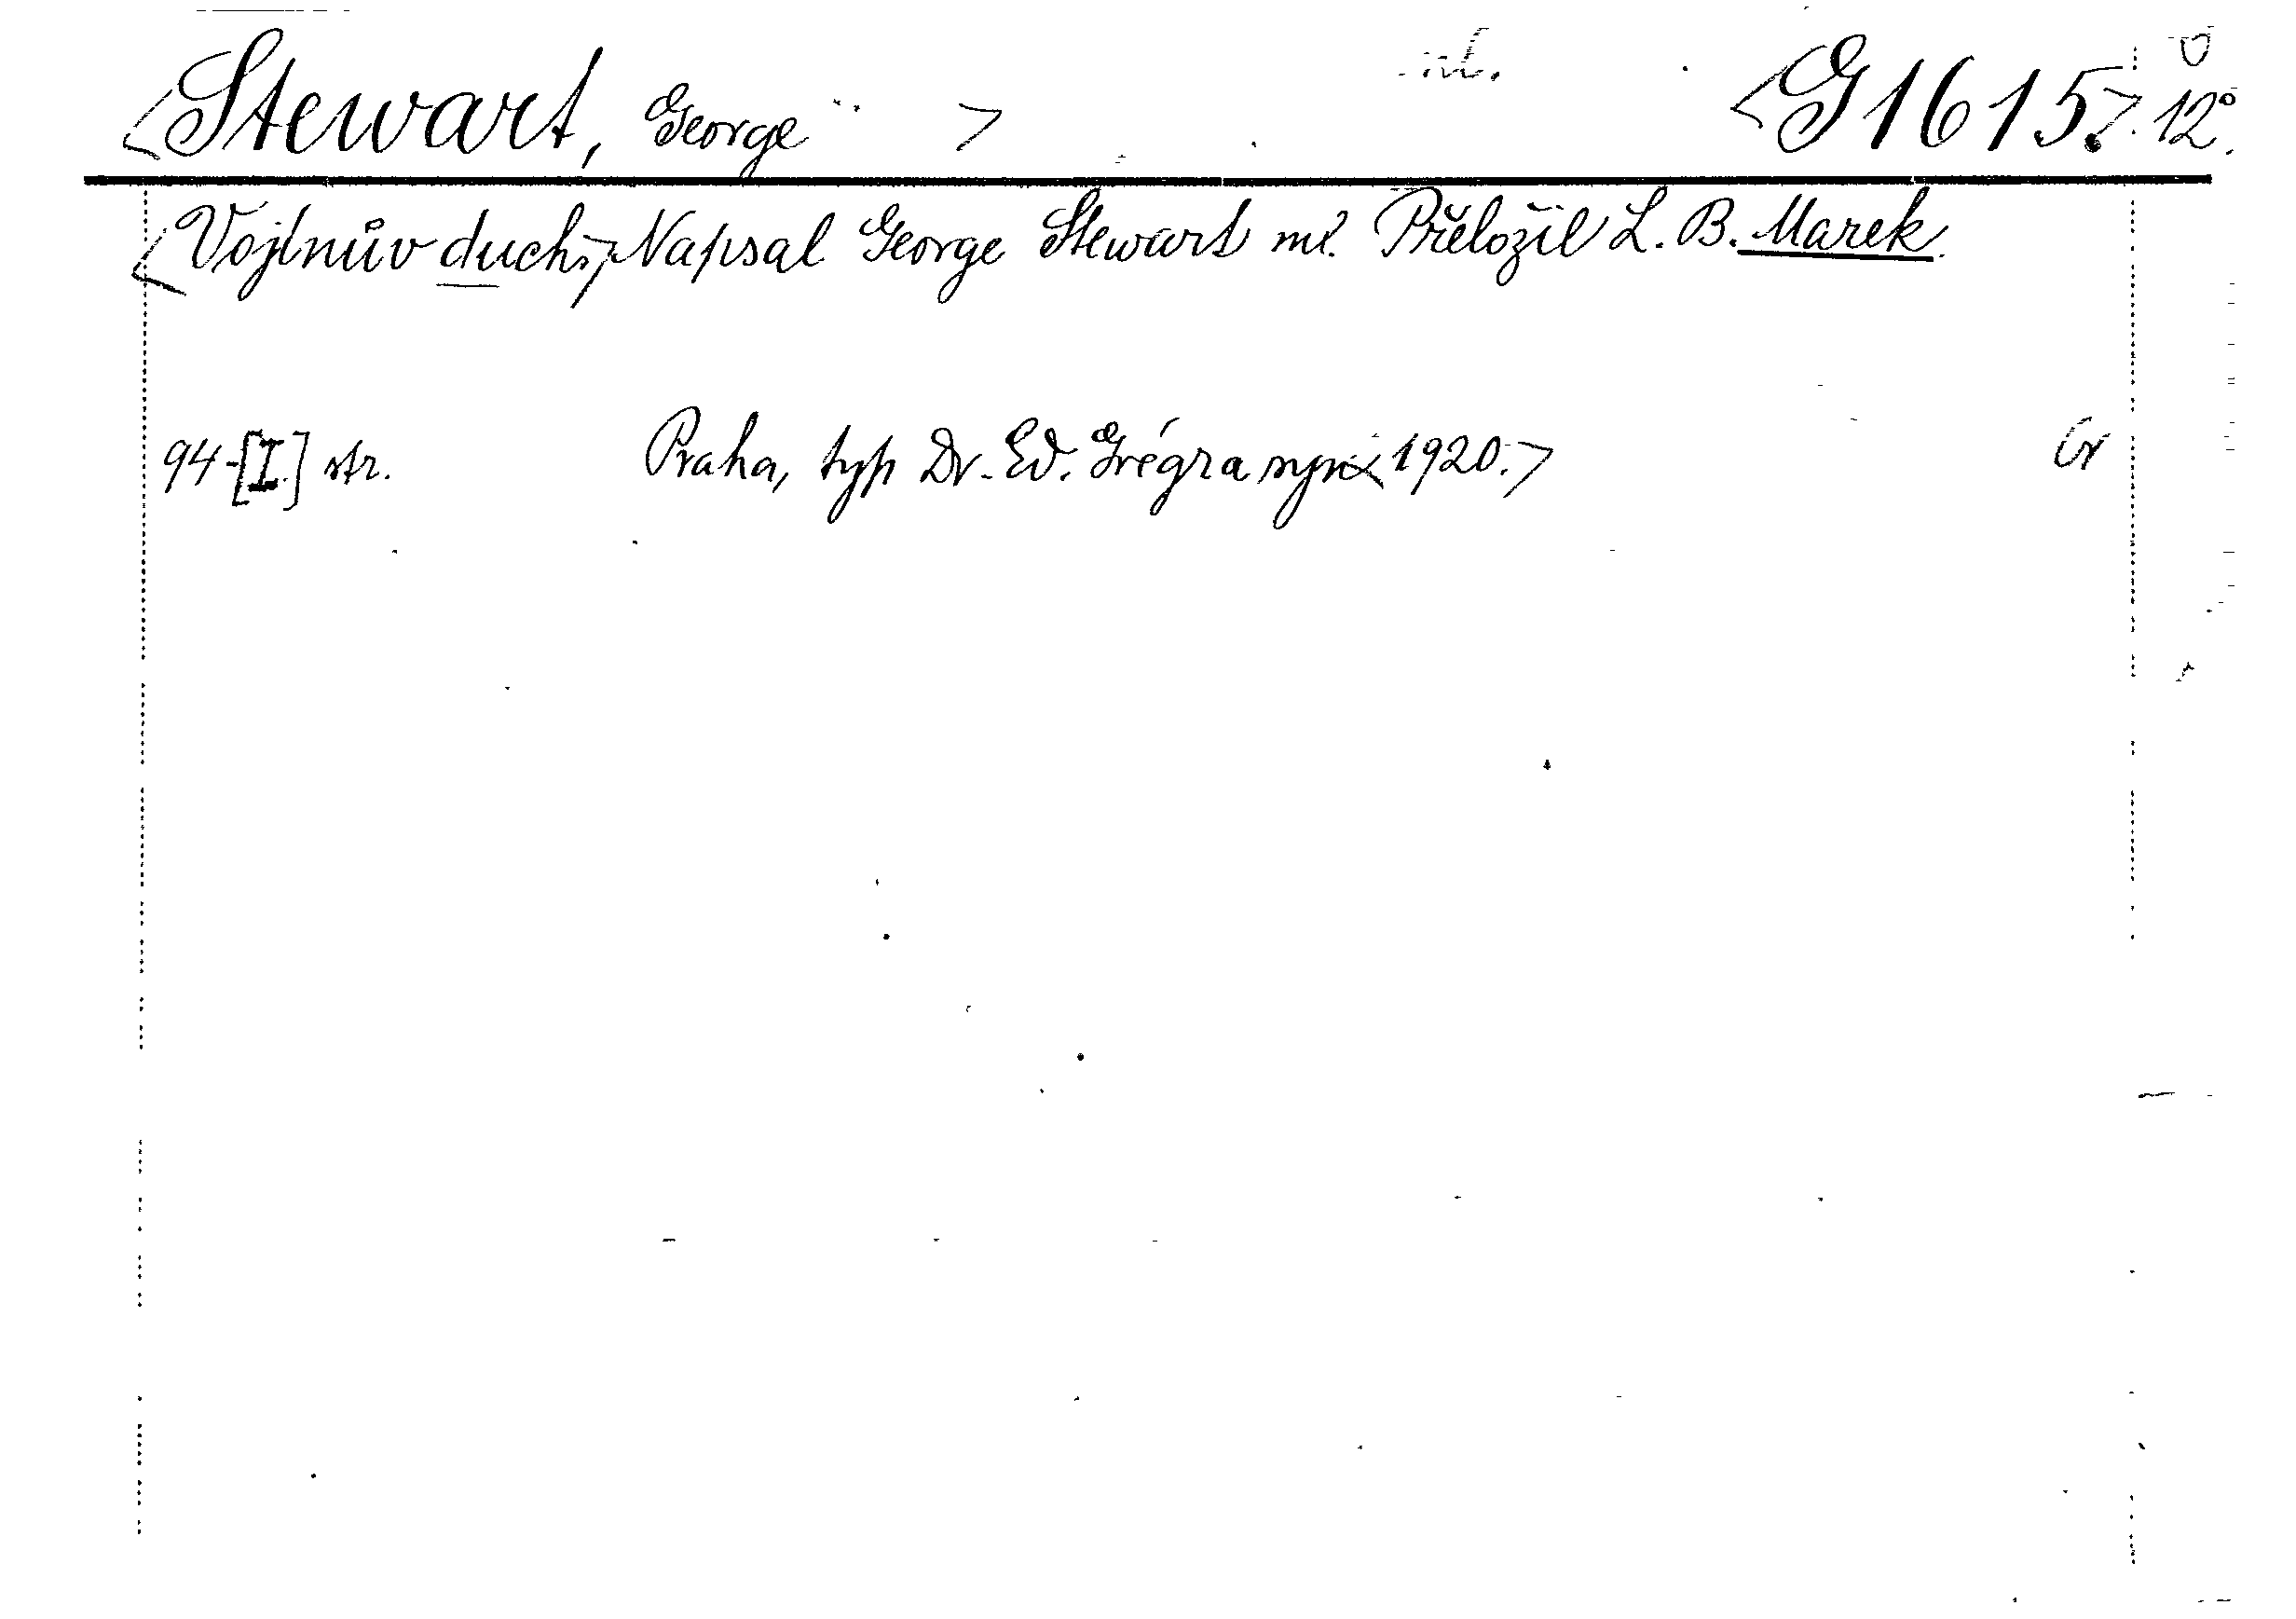 <Stewart, George > ml. <G 1615.> 12°.
<Vojínův duch.> Napsal George Stewart ml. Přeložil L. B. Marek.
94-[I.] str. Praha, typ Dr. Ed. Grégra syn 1920.>